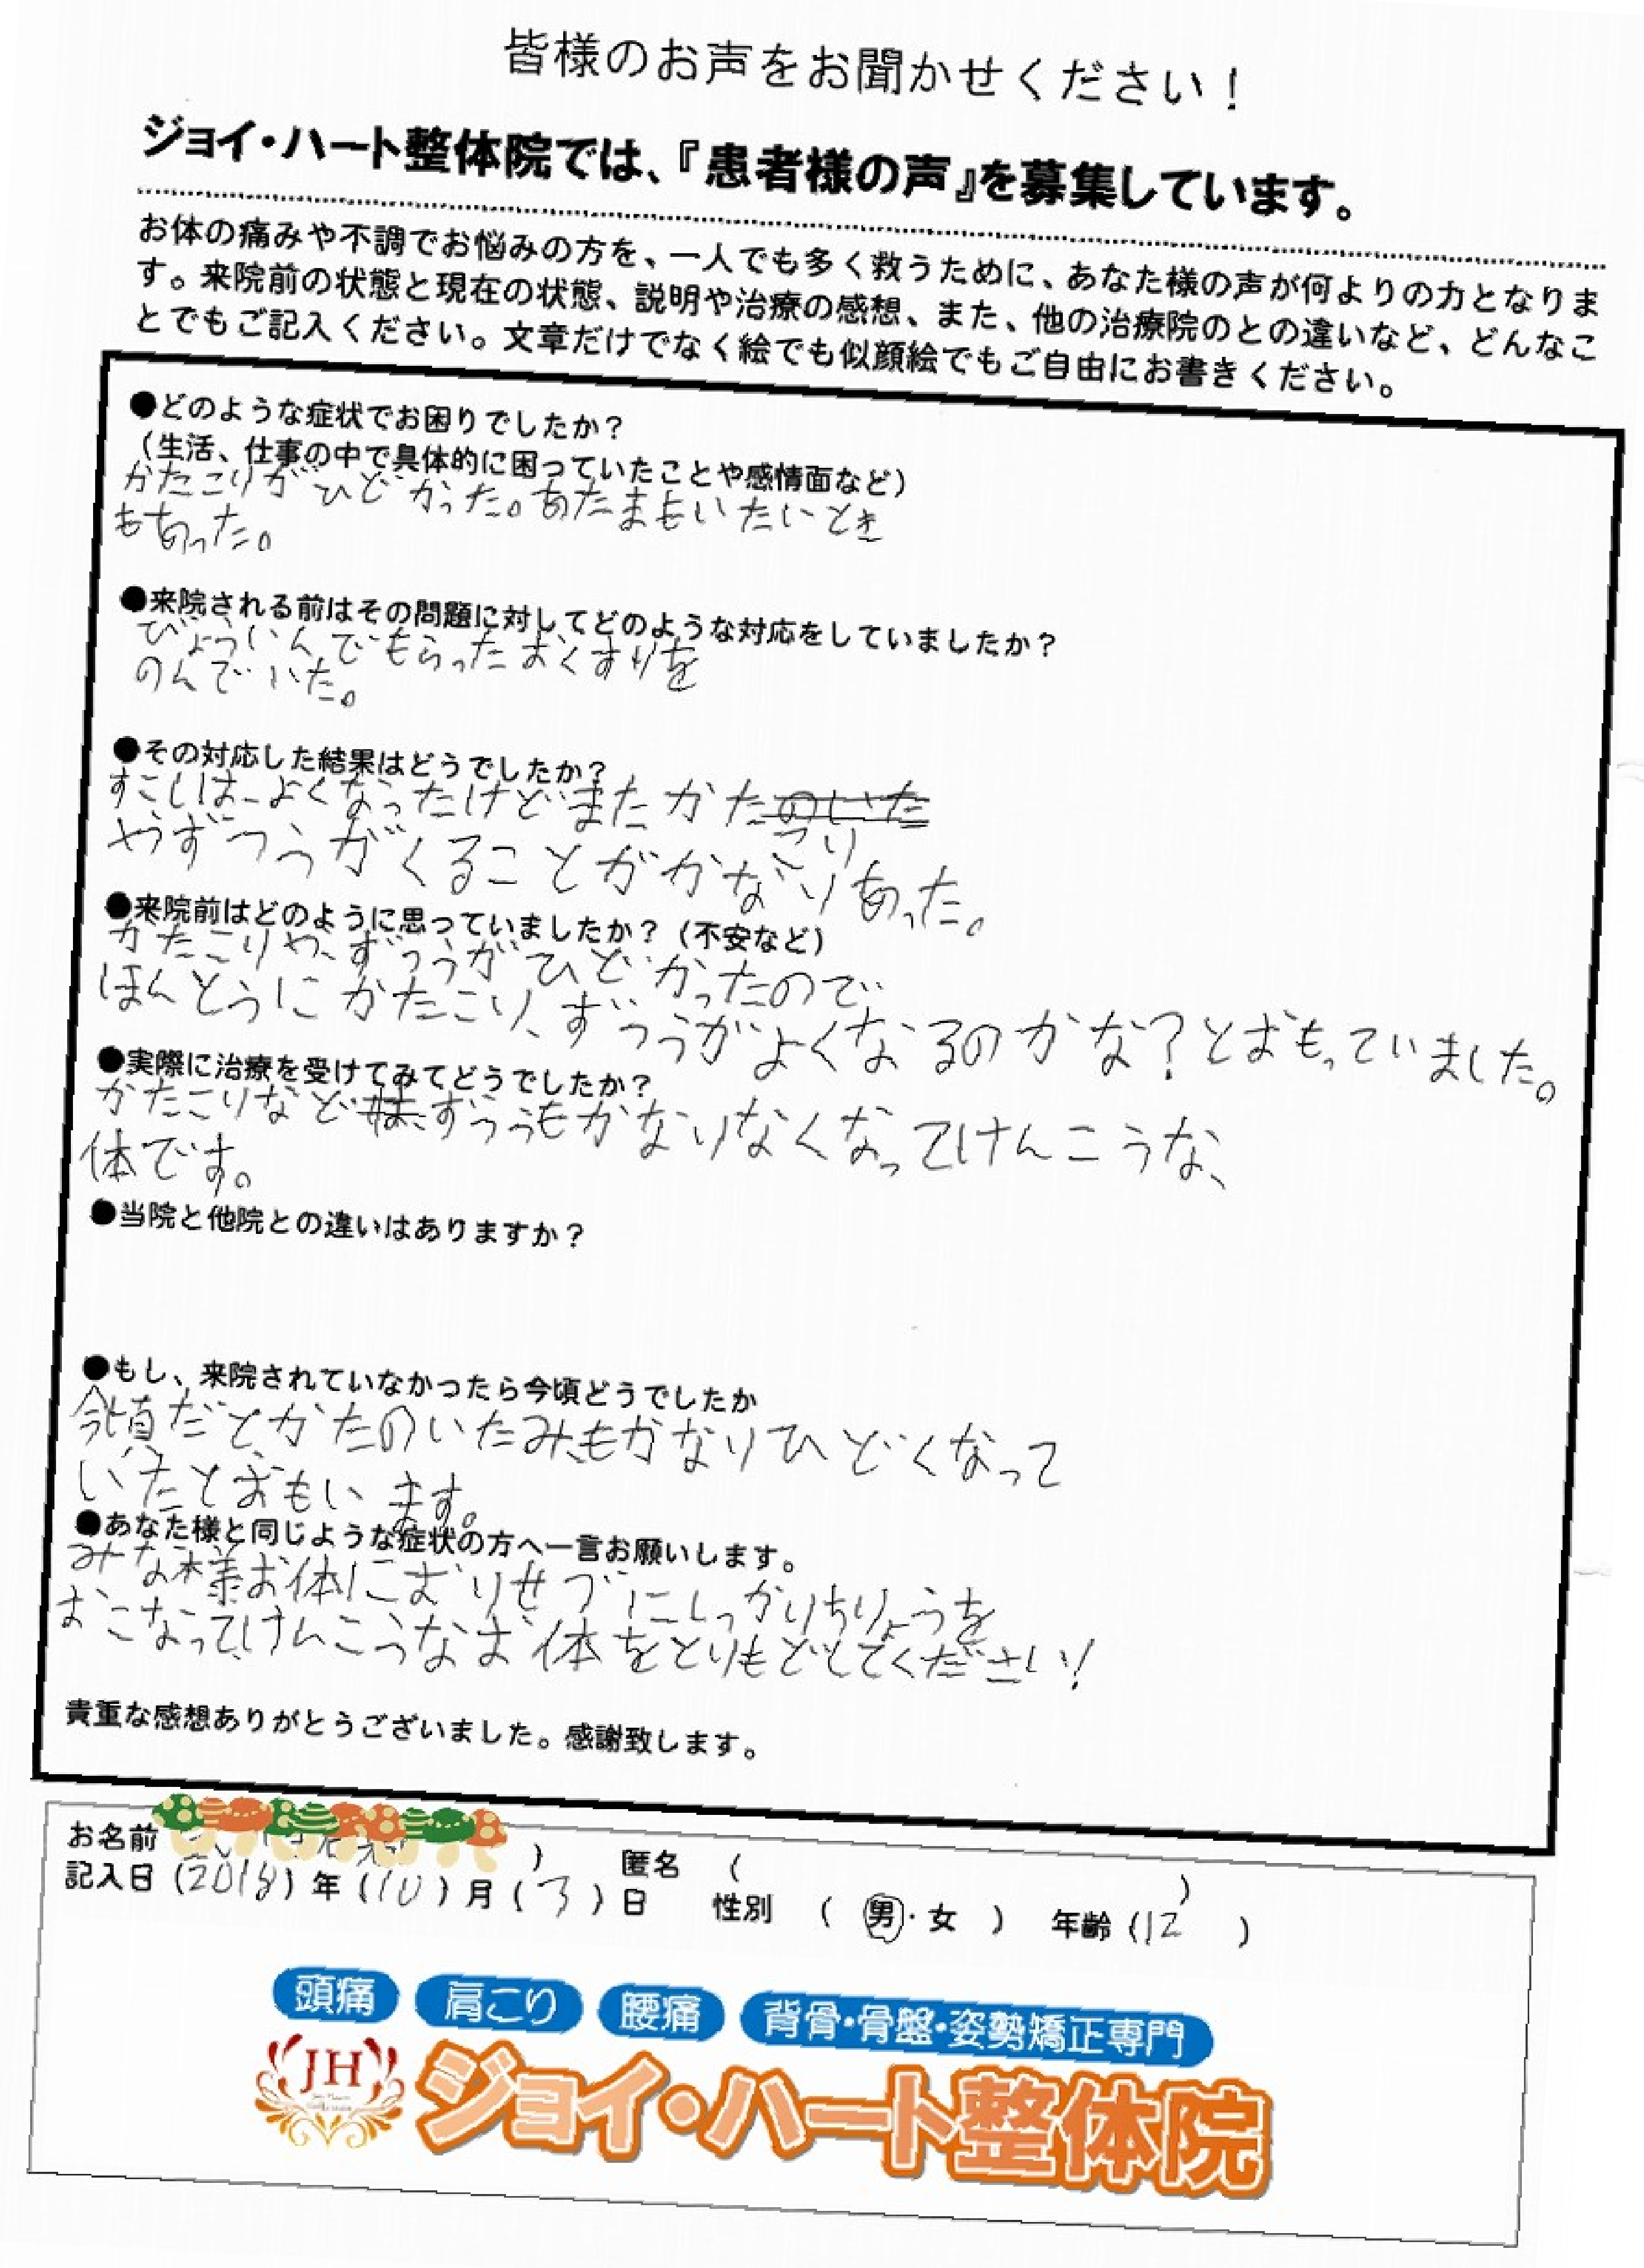 皆様のお声をお聞かせください！
ジョイ・ハート整体院では、『患者様の声』を募集しています。
お体の痛みや不調でお悩みの方を、一人でも多く救うために、あなた様の声が何よりの力となりま
す。来院前の状態と現在の状態、説明や治療の感想、また、他の治療院のとの違いなど、どんなこ
とでもご記入ください。文章だけでなく絵でも似顔絵でもご自由にお書きください。
●どのような症状でお困りでしたか？
（生活、仕事の中で具体的に困っていたことや感情面など）
かたこりがひどかった。あたまもいたいとき
もあった。
●来院される前はその問題に対してどのような対応をしていましたか？
びょういんでもらったおくすりを
のんでいた。
●その対応した結果はどうでしたか？
すこしは、よくなったけどまたかたのいた
こり
やずつうがくることがかなりあった。
●来院前はどのように思っていましたか？（不安など）
かたこりや、ずつうがひどかったので
ほんとうにかたこり、ずつうがよくなるのかな？とおもっていました。
●実際に治療を受けてみてどうでしたか？
かたこりなどずつうもかなりなくなってけんこうな、
体です。
●当院と他院との違いはありますか？
●もし、来院されていなかったら今頃どうでしたか
今頃だとかたのいたみもかなりひどくなって
いたとおもいます。
●あなた様と同じような症状の方へ一言お願いします。
みな様お体にむりせづにしっかりちりょうを
おこなってけんこうなお体をとりもどしてください！
貴重な感想ありがとうございました。感謝致します。
お名前 ） 匿名 （ ）
記入日（2018）年（10）月（3）日 性別 （ 男・女 ） 年齢（12 ）
頭痛 肩こり 腰痛 背骨・骨盤・姿勢矯正専門
JH
ジョイ・ハート整体院